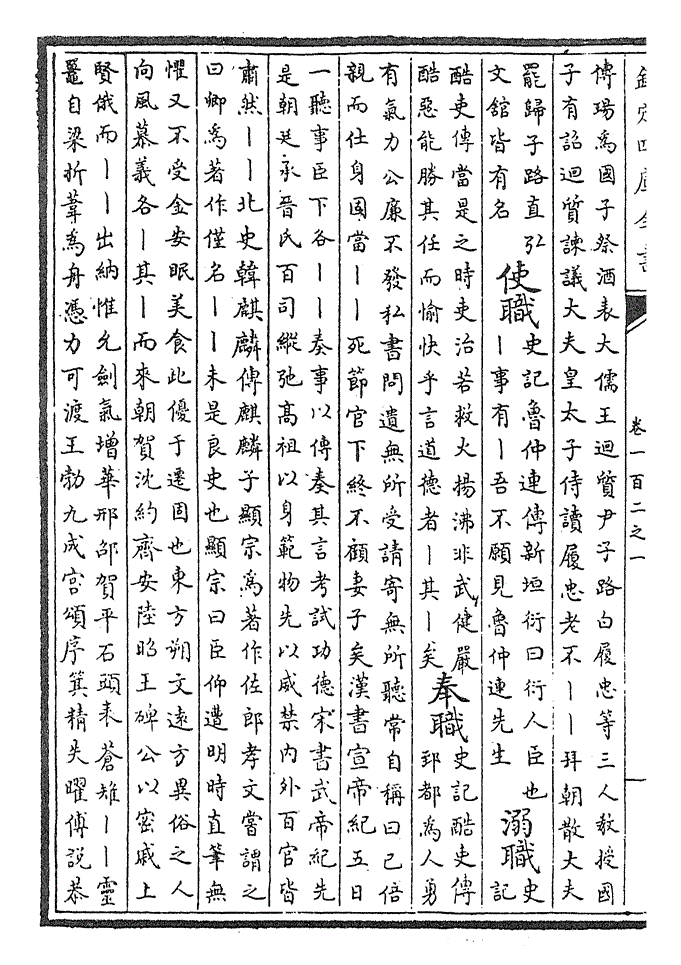 欽定四庫全書
卷一百二之一
傳瑒為國子祭酒表大儒王迥質尹子路白履忠等三人教授國
子有詔迥質諫議大夫皇太子侍讀履忠老不丨丨拜朝散大夫
罷歸子路直弘
文舘皆有名
使職
史記魯仲連傳新垣衍曰衍人臣也
丨事有丨吾不願見魯仲連先生
溺職
史
記
酷吏傳當是之時吏治若救火揚沸非武健嚴
酷惡能勝其任而愉快乎言道德者丨其丨矣
奉職
史記酷吏傳
郅都為人勇
有氣力公廉不發私書問遺無所受請寄無所聽常自稱曰已倍
親而仕身固當丨丨死節官下終不顧妻子矣漢書宣帝紀五日
一聽事臣下各丨丨奏事以傅奏其言考試功德宋書武帝紀先
是朝廷承晉氏百司縱弛高祖以身範物先以威禁内外百官皆
肅然丨丨北史韓麒麟傳麒麟子顯宗為著作佐郎孝文嘗謂之
曰卿為著作僅名丨丨未是良史也顯宗曰臣仰遭明時直筆無
懼又不受金安眠美食此優于遷固也東方朔文遠方異俗之人
向風慕義各丨其丨而來朝賀沈約齊安陸昭王碑公以密戚上
賢俄而丨丨出納惟允劍氣增華邢邵賀平石頭表蒼雉丨丨靈
鼉自梁折葦為舟憑力可渡王勃九成宮頌序箕精失曜傅說恭